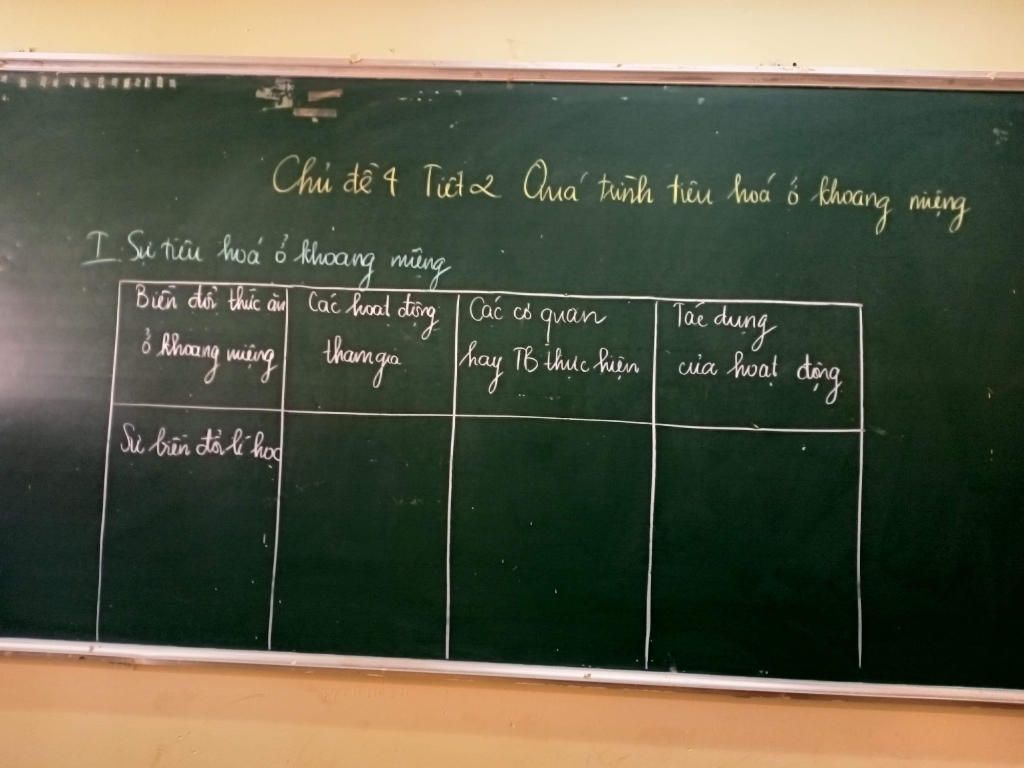 Chủ đề 4 Tiết 2 Quá trình tiêu hoá ở khoang miệng
I. Sự tiêu hoá ở khoang miệng
Biến đổi thức ăn
ở khoang miệng
Các hoạt động
tham gia
Các cơ quan
hay TB thực hiện
Tác dụng
của hoạt động
Sự biến đổi lí học